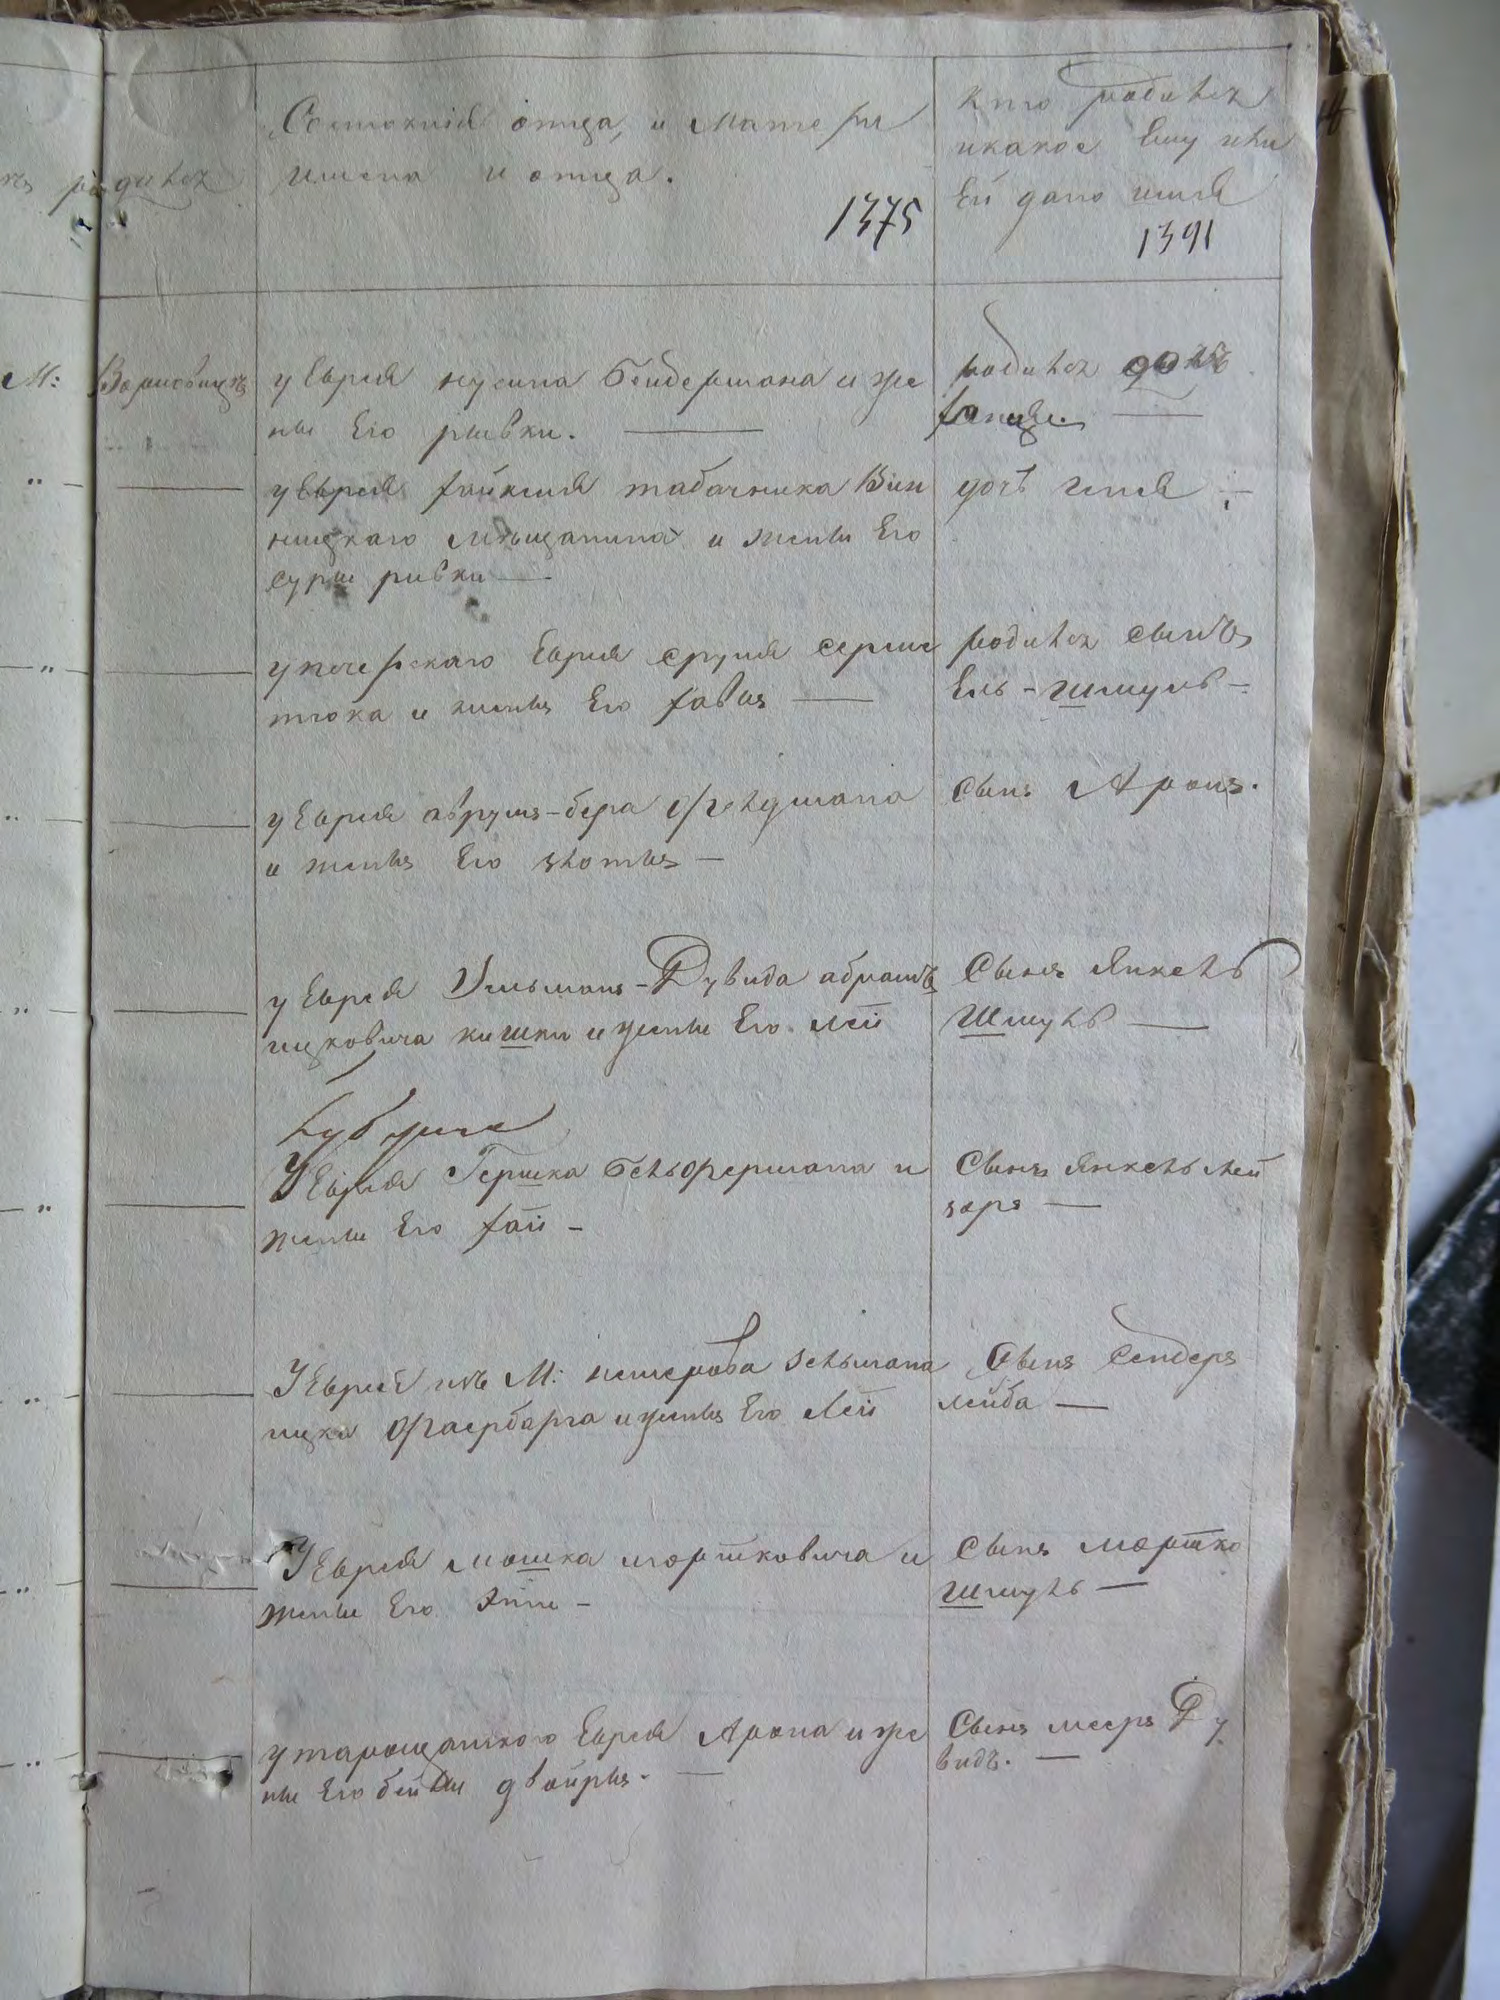 Состояния отца, и матери
имена и отца.
1375
кто родился
и какое ему или
ей дано имя
1391
родился
М: Борисвицъ
у Еврея нусина Бендермана и же
ны его рывки. —
родился дочь
ханця. —
у Еврея хайкеля табачника Вин
ницкаго мѣщанина и жены Его
суры ривки —
дочь геня
у печерскаго Еврея сруля серпи
тюка и жены Его хавы —
родился сынъ
Ель-Шмуль -
у Еврея аврумъ-бера фельдмана
и жены Его злоты —
сынъ Аронъ.
у Еврея Ульманъ-Дувида абрамъ
ицковича кишки и жены Его Леи
Сынъ Янкель
Шмуль —
У Еврея Гершка Бельфермана и
жены Его хаи -
Сынъ Янкель Лей
заръ —
У Еврея изъ М: немерова зельмана
ицка фаербарга и жены Его Леи
Сынъ Сендеръ
лейба —
У Еврея мошка моршковича и
жены Его Эти -
Сынъ моршко
Шмуль —
у таращанского Еврея Арона и же
ны Его бейлы двойры. —
Сынъ мееръ Ду
видъ. —